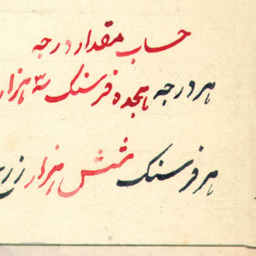 حساب مقدار درجه
هر درجه هجده فرسنگ سه هزار
هر فرسنگ شش هزار